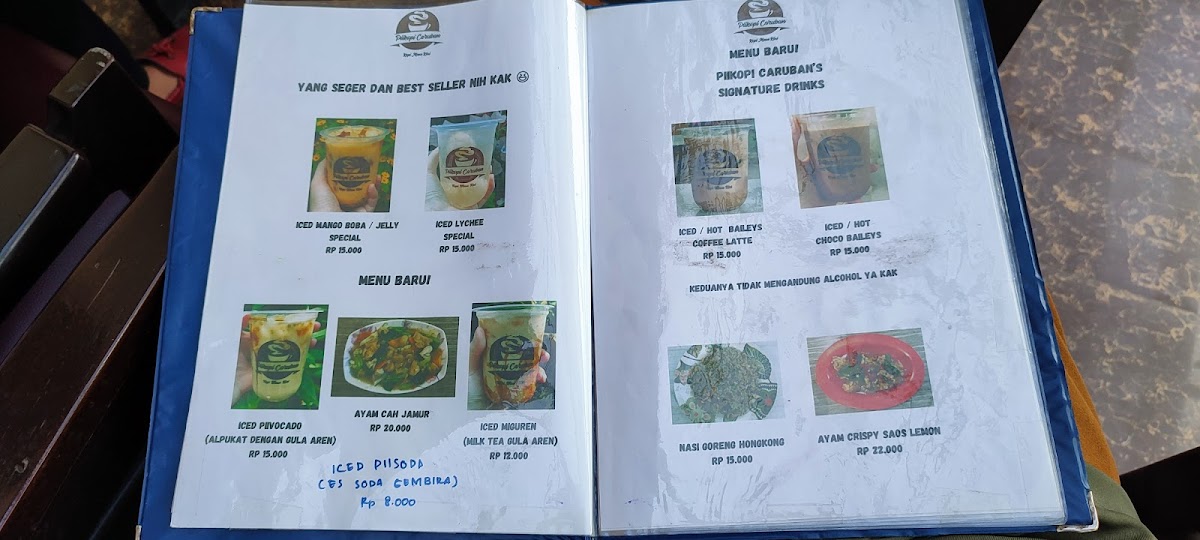 Piikopi Caruban
YANG SEGER DAN BEST SELLER NIH KAK
ICED MANGO BOBA / JELLY
SPECIAL
RP 15.000
ICED LYCHEE
SPECIAL
RP 15.000
MENU BARU!
ICED PIIVOCADO
(ALPUKAT DENGAN GULA AREN)
RP 15.000
AYAM CAH JAMUR
RP 20.000
ICED MIGUREN
(MILK TEA GULA AREN)
RP 12.000
ICED PIISODA
(ES SODA GEMBIRA)
Rp 8.000
Piikopi Caruban
MENU BARU!
PIIKOPI CARUBAN'S
SIGNATURE DRINKS
ICED / HOT BAILEYS
COFFEE LATTE
RP 15.000
ICED / HOT
CHOCO BAILEYS
RP 15.000
KEDUANYA TIDAK MENGANDUNG ALCOHOL YA KAK
NASI GORENG HONGKONG
RP 15.000
AYAM CRISPY SAOS LEMON
RP 22.000